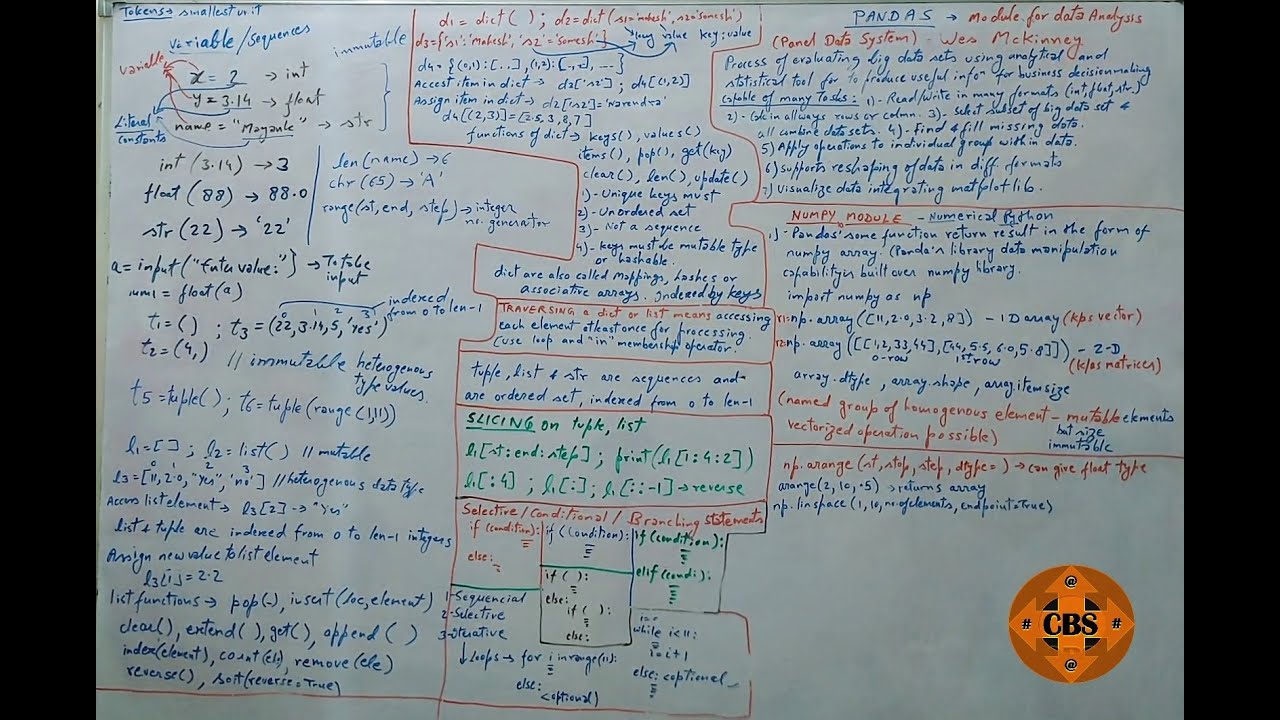 Tokens → smallest unit
Variable/Sequences
immutable
variable
x = 2 → int
y = 3.14 → float
name = "Mayank" → str
Literal
constants
int (3.14) → 3
float (88) → 88.0
str (22) → '22'
len(name) → 6
chr (65) → 'A'
range(st, end, step) → integer
no. generator
a = input("Enter value:") → To take
input
num1 = float(a)
indexed
from 0 to len-1
0 1 2 3
t1 = ( ) ; t3 = (22, 3.14, 5, 'yes')
t2 = (4,)
// immutable heterogenous
type values.
t5 = tuple( ) ; t6 = tuple(range(1,11))
l1 = [ ] ; l2 = list( ) // mutable
0 1 2 3
l3 = [11, 2.0, "yes", 'no'] // heterogenous data type
Access list element → l3[2] → "yes"
list & tuple are indexed from 0 to len-1 integers
Assign new value to list element
l3[1] = 2.2
list functions → pop(-), insert(loc, element)
clear(), extend( ), get( ), append ( )
index(element), count(ele), remove (ele)
reverse(), sort(reverse=True)
d1 = dict( ) ; d2 = dict(s1='mahesh', s2='somesh')
d3 = {'s1':'Mahesh', 's2'='somesh'}
key value key:value
d4 = {(0,1):[..], (1,2):[-,2], ...}
Access item in dict → d2['s2'] ; d4[(1,2)]
Assign item in dict → d2['s2']='narendra'
d4[(2,3)] = [2.5, 3, 8, 7]
functions of dict → keys(), values()
items(), pop(), get(key)
clear(), len(), update()
1)- Unique keys must
2)- Unordered set
3)- Not a sequence
4)- keys must be mutable type
or hashable.
dict are also called mappings, hashes or
associative arrays. Indexed by keys
TRAVERSING a dict or list means accessing
each element atleast once for processing.
(use loop and "in" membership operator.
tuple, list & str are sequences and
are ordered set, indexed from 0 to len-1
SLICING on tuple, list
l1[st:end:step] ; print(l1[1:4:2])
l1[:4] ; l1[:] ; l1[::-1] → reverse
Selective/Conditional/Branching statements
if (condition):
else:
if (condition):
if ( ):
else:
if ( ):
else:
if (condition):
elif (condi):
1-Sequencial
2-Selective
3-iterative
↓ Loops → for i in range(11):
else:
<optional)
i=0
while i<11:
i=i+1
else: <optional
PANDAS → Module for data Analysis
(Panel Data System) - Wes McKinney
Process of evaluating big data sets using analytical and
statistical tool for to produce useful infon for business decision making
capable of many Tasks: 1)- Read/write in many formats (int, float, str)
2)- Calc in all ways rows or colmn. 3)- select subset of big data set &
all combine data sets. 4)- Find & fill missing data.
5) Apply operations to individual group with in data.
6) supports reshaping of data in diff formats
7) Visualize data integrating matplotlib.
NUMPY MODULE - Numerical Python
1)- Pandas' some function return result in the form of
numpy array. (Panda's library data manipulation
capability is built over numpy library.
import numpy as np
x1 = np.array([11, 2.0, 3.2, 8]) - 1D array (k/as vector)
x2 = np.array([[1,2,33,44],[44,5.5,6.0,5.8]]) - 2-D
0-row 1st row
(k/as matrices)
array.dtype, array.shape, array.itemsize
(named group of homogenous element - mutable elements
but size
immutable
vectorized operation possible)
np.arange (st, stop, step, dtype= ) → can give float type
arange(2, 10, .5) → returns array
np.linspace (1, 10, no of elements, endpoint=True)
@
# CBS #
@